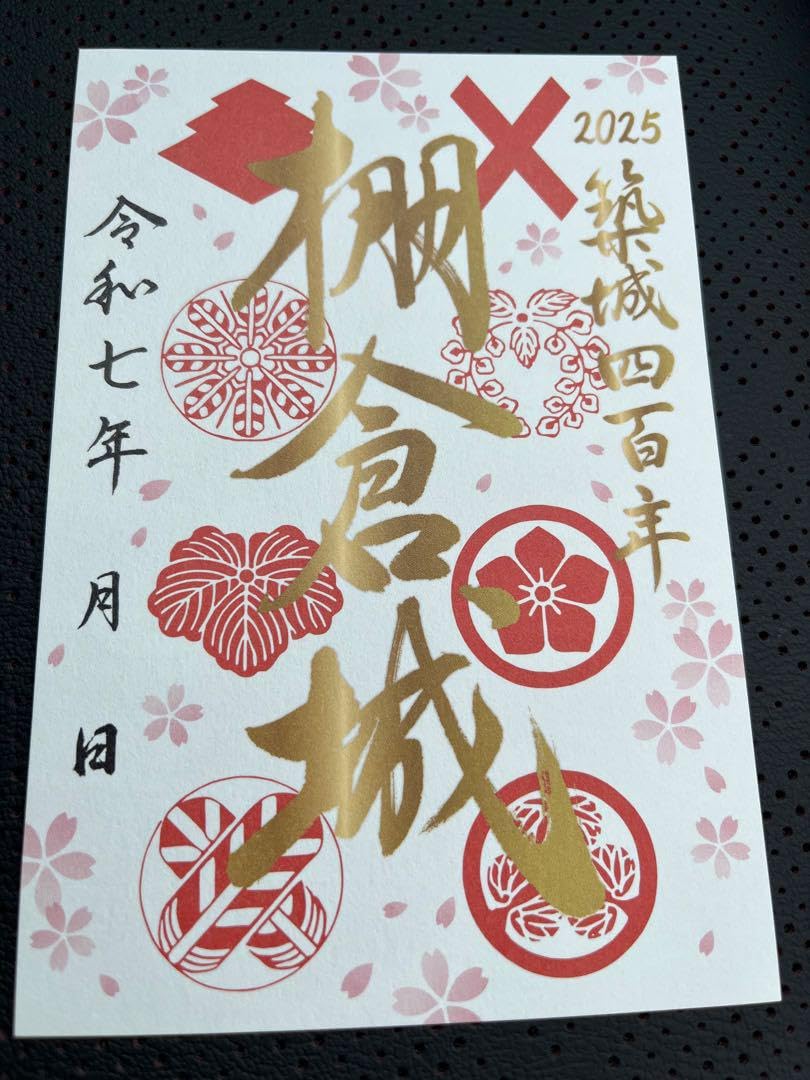 2025
築城四百年
棚倉城
令和七年 月 日